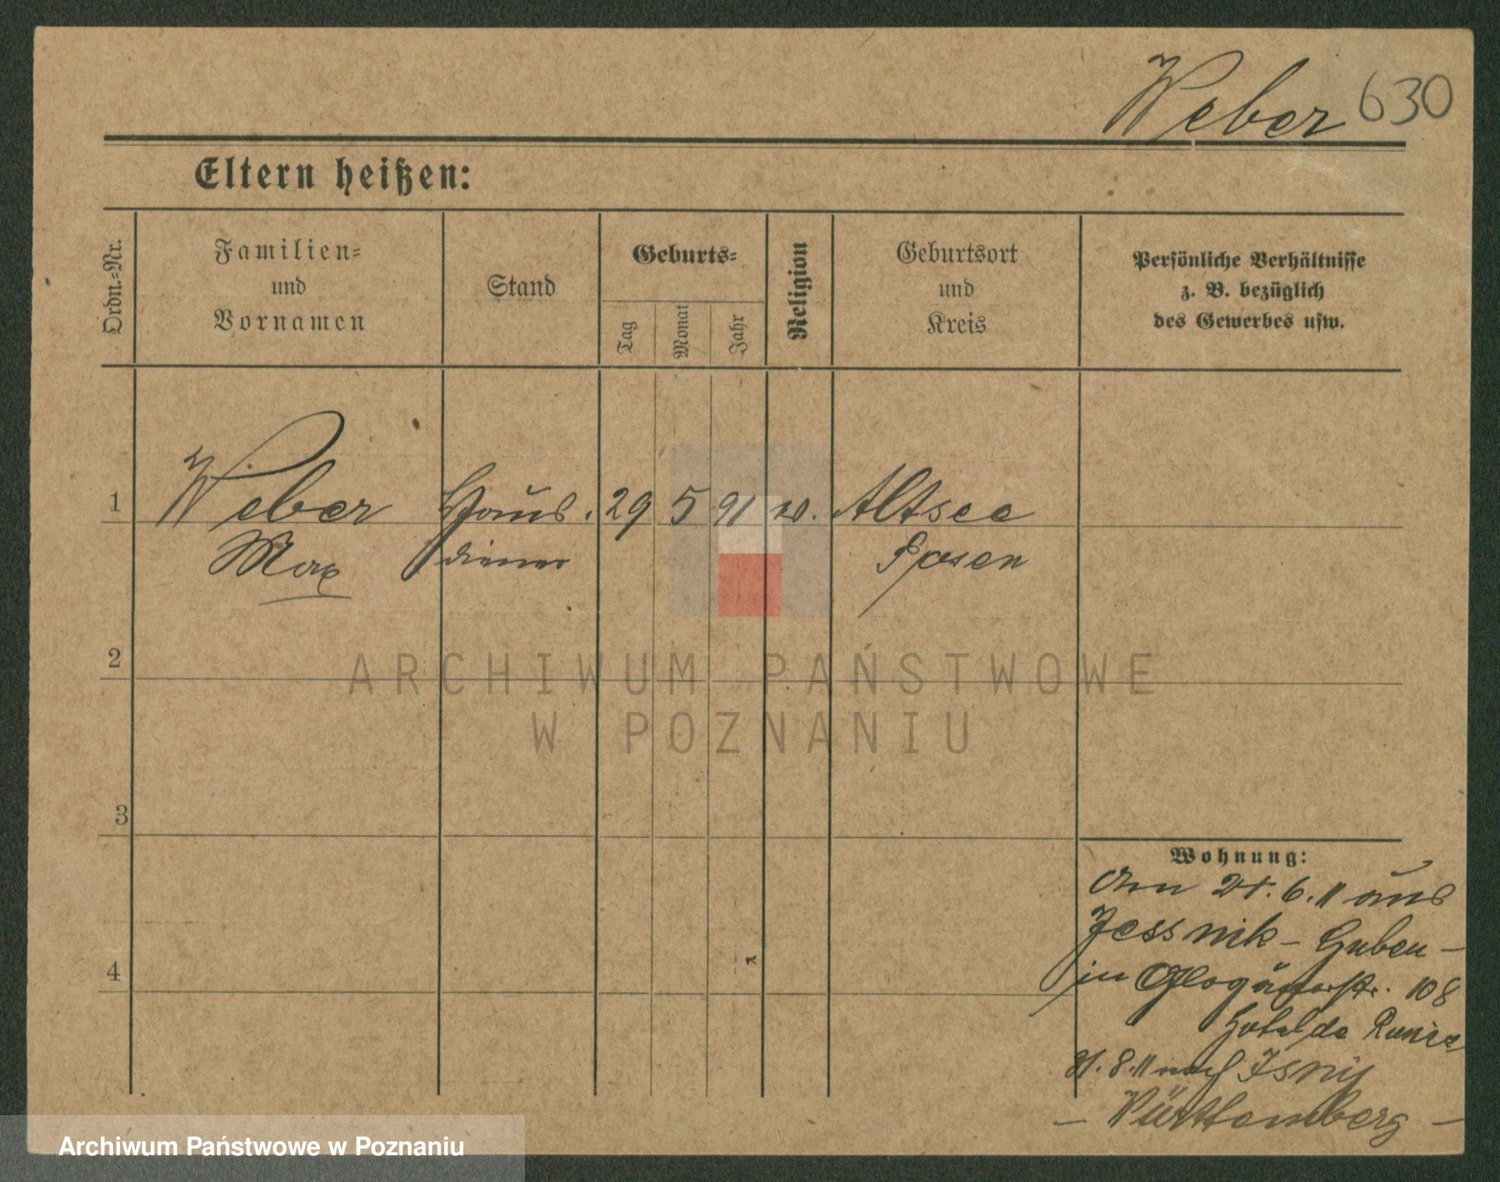 Weber 630
Eltern heißen:
Ordn.-Nr.
Familien-
und
Vornamen
Stand
Geburts-
Tag
Monat
Jahr
Religion
Geburtsort
und
Kreis
Persönliche Verhältnisse
z. B. bezüglich
des Gewerbes usw.
1 Weber Haus- 29 5 91 Altsee
Max diener Posen
2
3
4
Wohnung:
6.11 aus
Jessnik - Guben -
in Glogauerstr. 108
Hotel de
8.11 nach Isny
- Württemberg -
ARCHIWUM PAŃSTWOWE
W POZNANIU
Archiwum Państwowe w Poznaniu